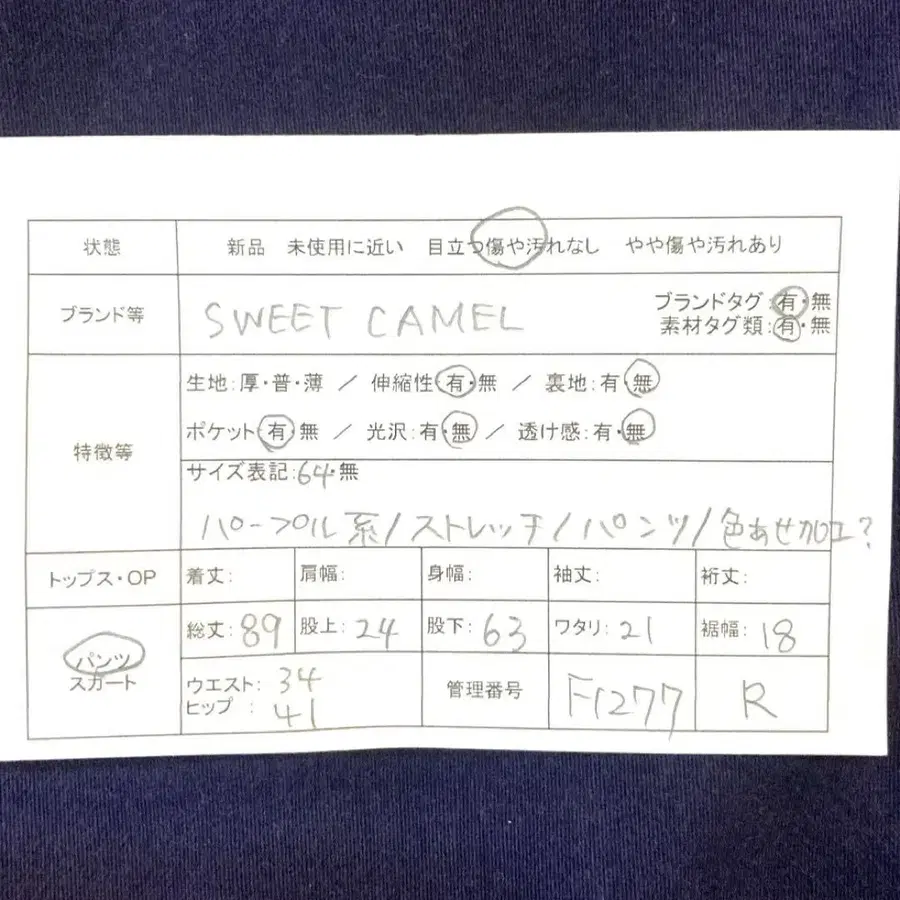 状態 新品 未使用に近い 目立つ傷や汚れなし やや傷や汚れあり
ブランド等 SWEET CAMEL ブランドタグ:有・無
素材タグ類:有・無
特徴等
生地:厚・普・薄 / 伸縮性:有・無 / 裏地:有・無
ポケット:有・無 / 光沢:有・無 / 透け感:有・無
サイズ表記:64・無
パープル系/ストレッチ/パンツ/色あせ加工?
トップス・OP 着丈: 肩幅: 身幅: 袖丈: 裄丈:
パンツ
スカート
総丈:89 股上:24 股下:63 ワタリ:21 裾幅:18
ウエスト:34
ヒップ:41
管理番号 F1277 R